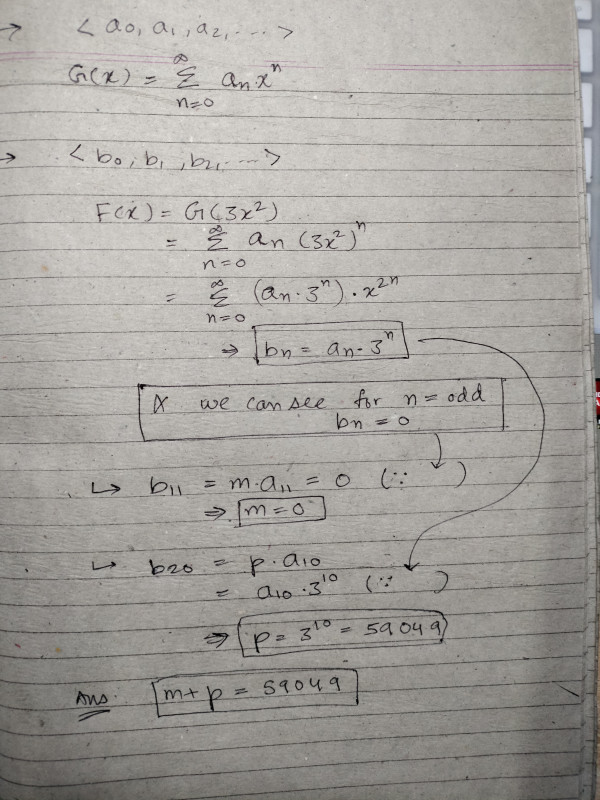 → < a0, a1, a2, ... >
G(x) = ∞ Σ n=0 an x^n
→ < b0, b1, b2, ... >
F(x) = G(3x²)
= ∞ Σ n=0 an (3x²)^n
= ∞ Σ n=0 (an · 3^n) · x^2n
⇒ bn = an · 3^n
& we can see for n = odd
bn = 0
↳ b11 = m·a11 = 0 (∵ )
⇒ m = 0
↳ b20 = p·a10
= a10 · 3^10 (∵ )
⇒ p = 3^10 = 59049
Ans. m+p = 59049